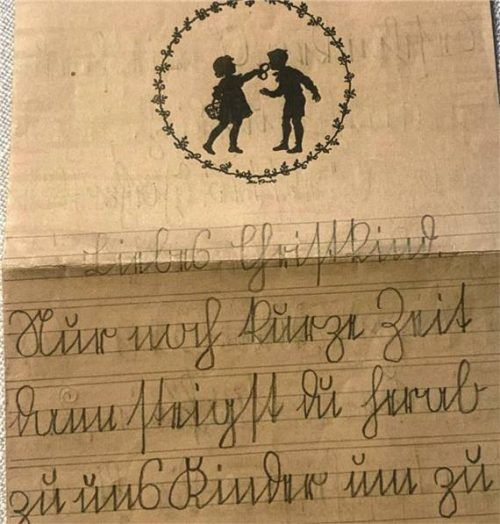 Liebes Christkind.
Nur noch kurze Zeit
dann steigst du herab
zu uns Kinder um zu